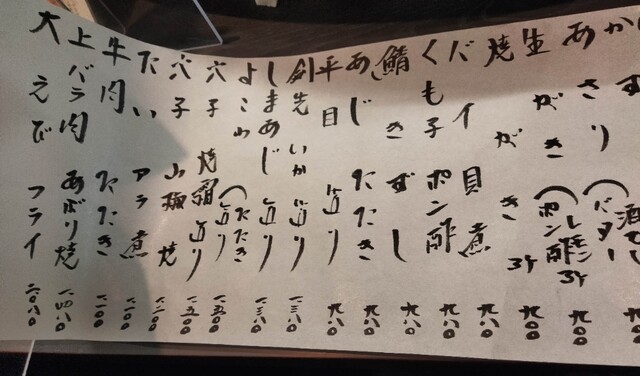 あさり（バター 九〇〇
生がき（レモン ポン酢 3ケ 九〇〇
焼がき 3ケ 九〇〇
バイ貝煮 九八〇
くも子ポン酢 九八〇
鯖きずし 九八〇
あじたたき 九八〇
平目造り 九八〇
剣先いか造り 一.三八〇
しまあじ造り 一.三八〇
よこ山（たたき 造り
穴子焼 造り 一.五〇〇
穴子山椒焼 一.五〇〇
たいアラ煮
牛肉たたき 一.一〇〇
上バラ肉あぶり焼 一.四八〇
大えびフライ 二.〇八〇